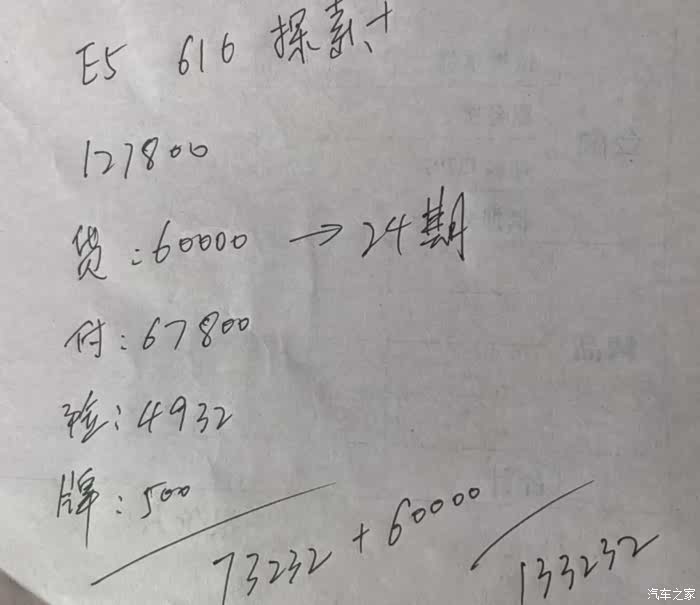 E5 616 探索+
127800
贷:60000 → 24期
付:67800
险:4932
牌:500
73232 + 60000
133232
汽车之家